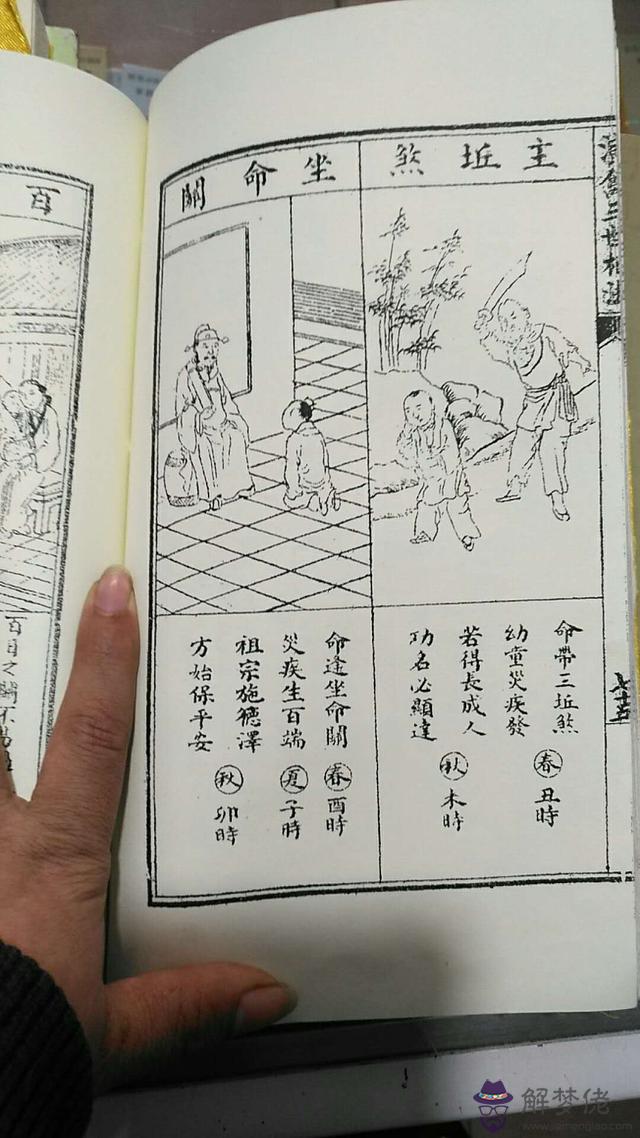 演禽三世相法
主坵煞
命帶三坵煞
幼童災疾發
若得長成人
功名必顯達
春 丑時
秋 未時
坐命關
命逢坐命關
災疾生百端
祖宗施德澤
方始保平安
春 酉時
夏 子時
秋 卯時
百
百日之關不
解梦佬
www.jiemenglao.com